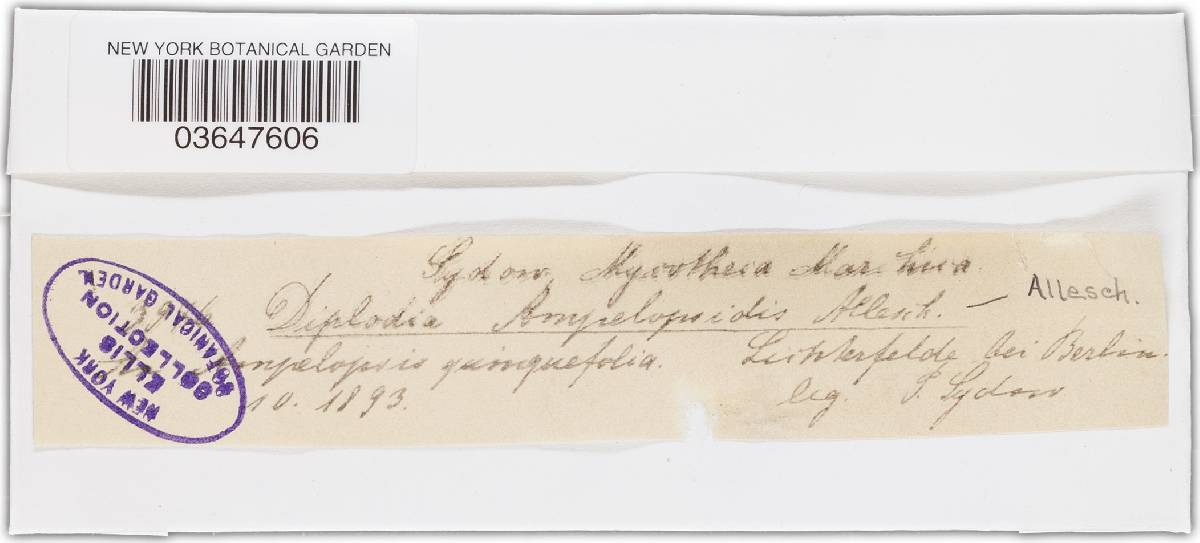 NEW YORK BOTANICAL GARDEN
03647606
Sydow, Mycotheca Marchica
Diplodia Ampelopsidis Allesch. — Allesch.
Ampelopsis quinquefolia. Lichterfelde bei Berlin.
10. 1893. leg. P. Sydow
NEW YORK
ELLIS
COLLECTION
BOTANICAL GARDEN.